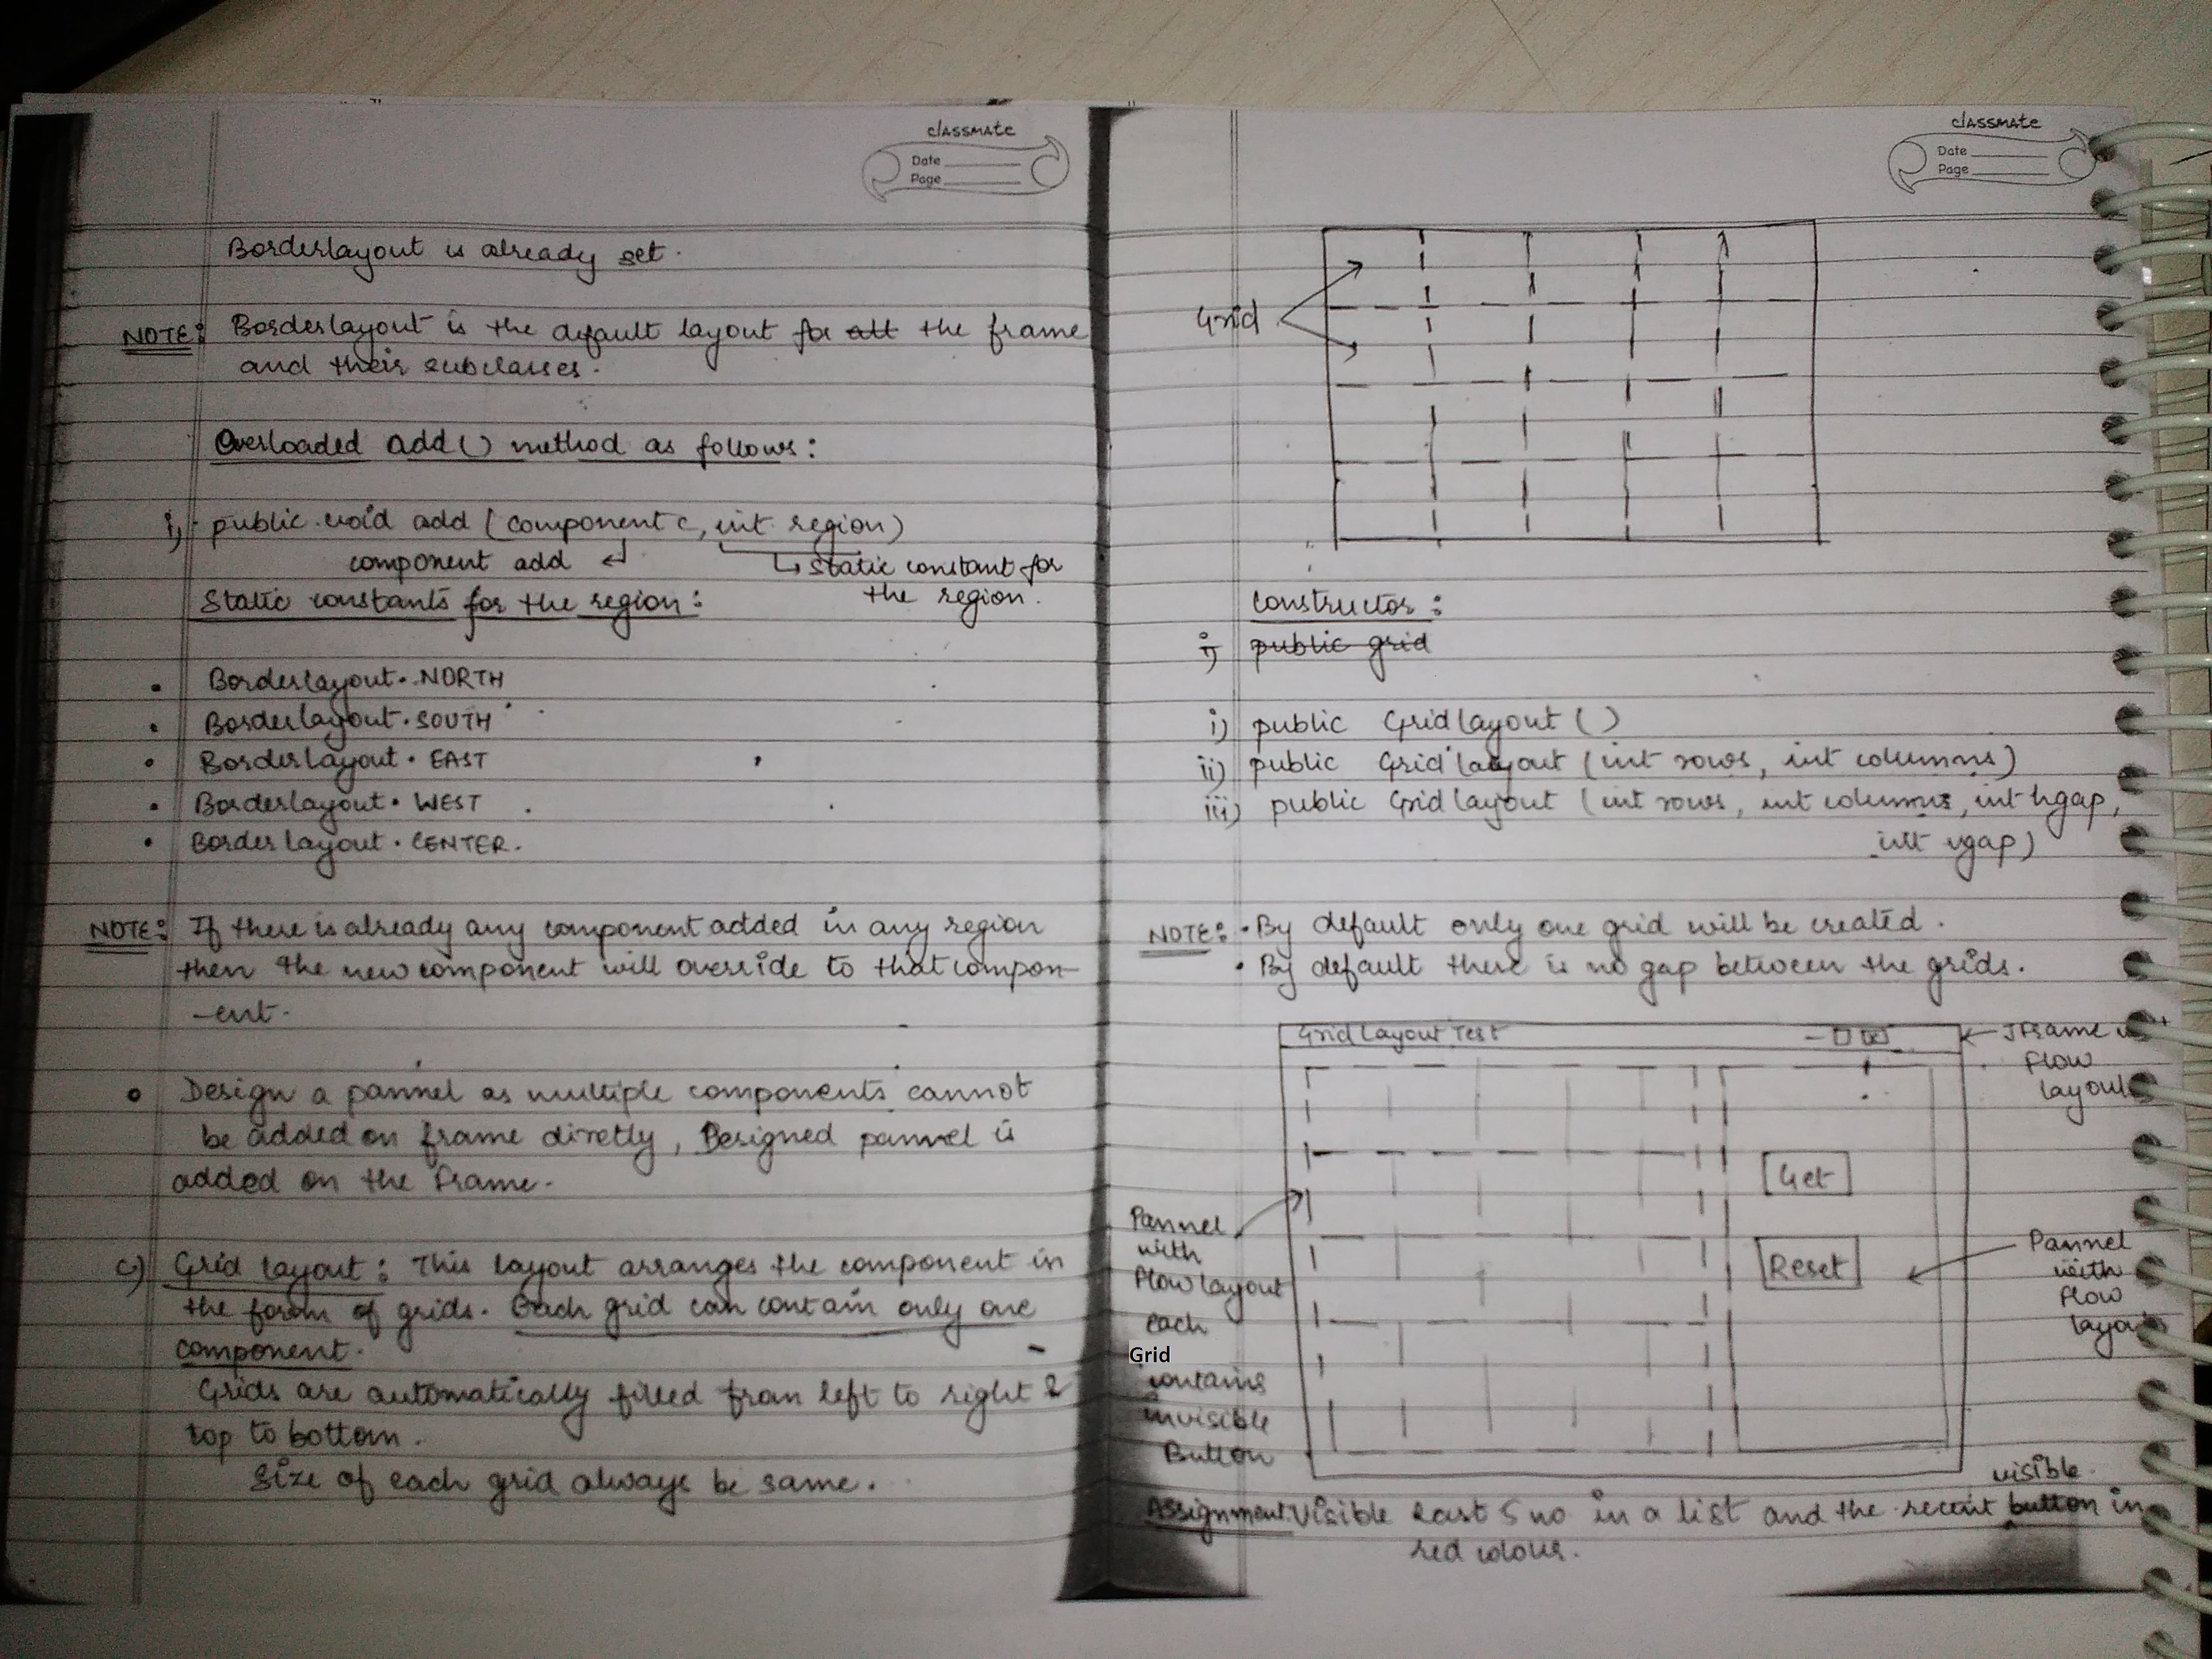 classmate
Date
Page
Borderlayout is already set.
NOTE: Borderlayout is the default layout for all the frame
and their subclasses.
Overloaded add() method as follows:
i) public void add (component c, int region)
component add
↳ static constant for
the region.
Static constants for the region:
• Borderlayout. NORTH
• Borderlayout. SOUTH
• Borderlayout. EAST
• Borderlayout. WEST
• Borderlayout. CENTER.
NOTE: If there is already any component added in any region
then the new component will override to that compon-
-ent.
Design a pannel as multiple components cannot
be added on frame directly, Designed pannel is
added on the frame.
c) Grid layout: This layout arranges the component in
the form of grids. Each grid can contain only one
component.
Grids are automatically filled from left to right &
top to bottom.
Size of each grid always be same.
classmate
Date
Page
Grid
Constructor:
i) public grid
i) public Gridlayout ()
ii) public Gridlayout (int rows, int columns)
iii) public Gridlayout (int rows, int columns, int hgap,
int vgap)
NOTE: • By default only one grid will be created.
• By default there is no gap between the grids.
Grid Layout Test
JFrame
Flow
layout
Get
Reset
Pannel
with
Flow layout
each
Grid
contains
invisible
Button
Pannel
with
flow
layout
visible
Assignment: Visible last 5 no in a list and the recent button in
red colour.